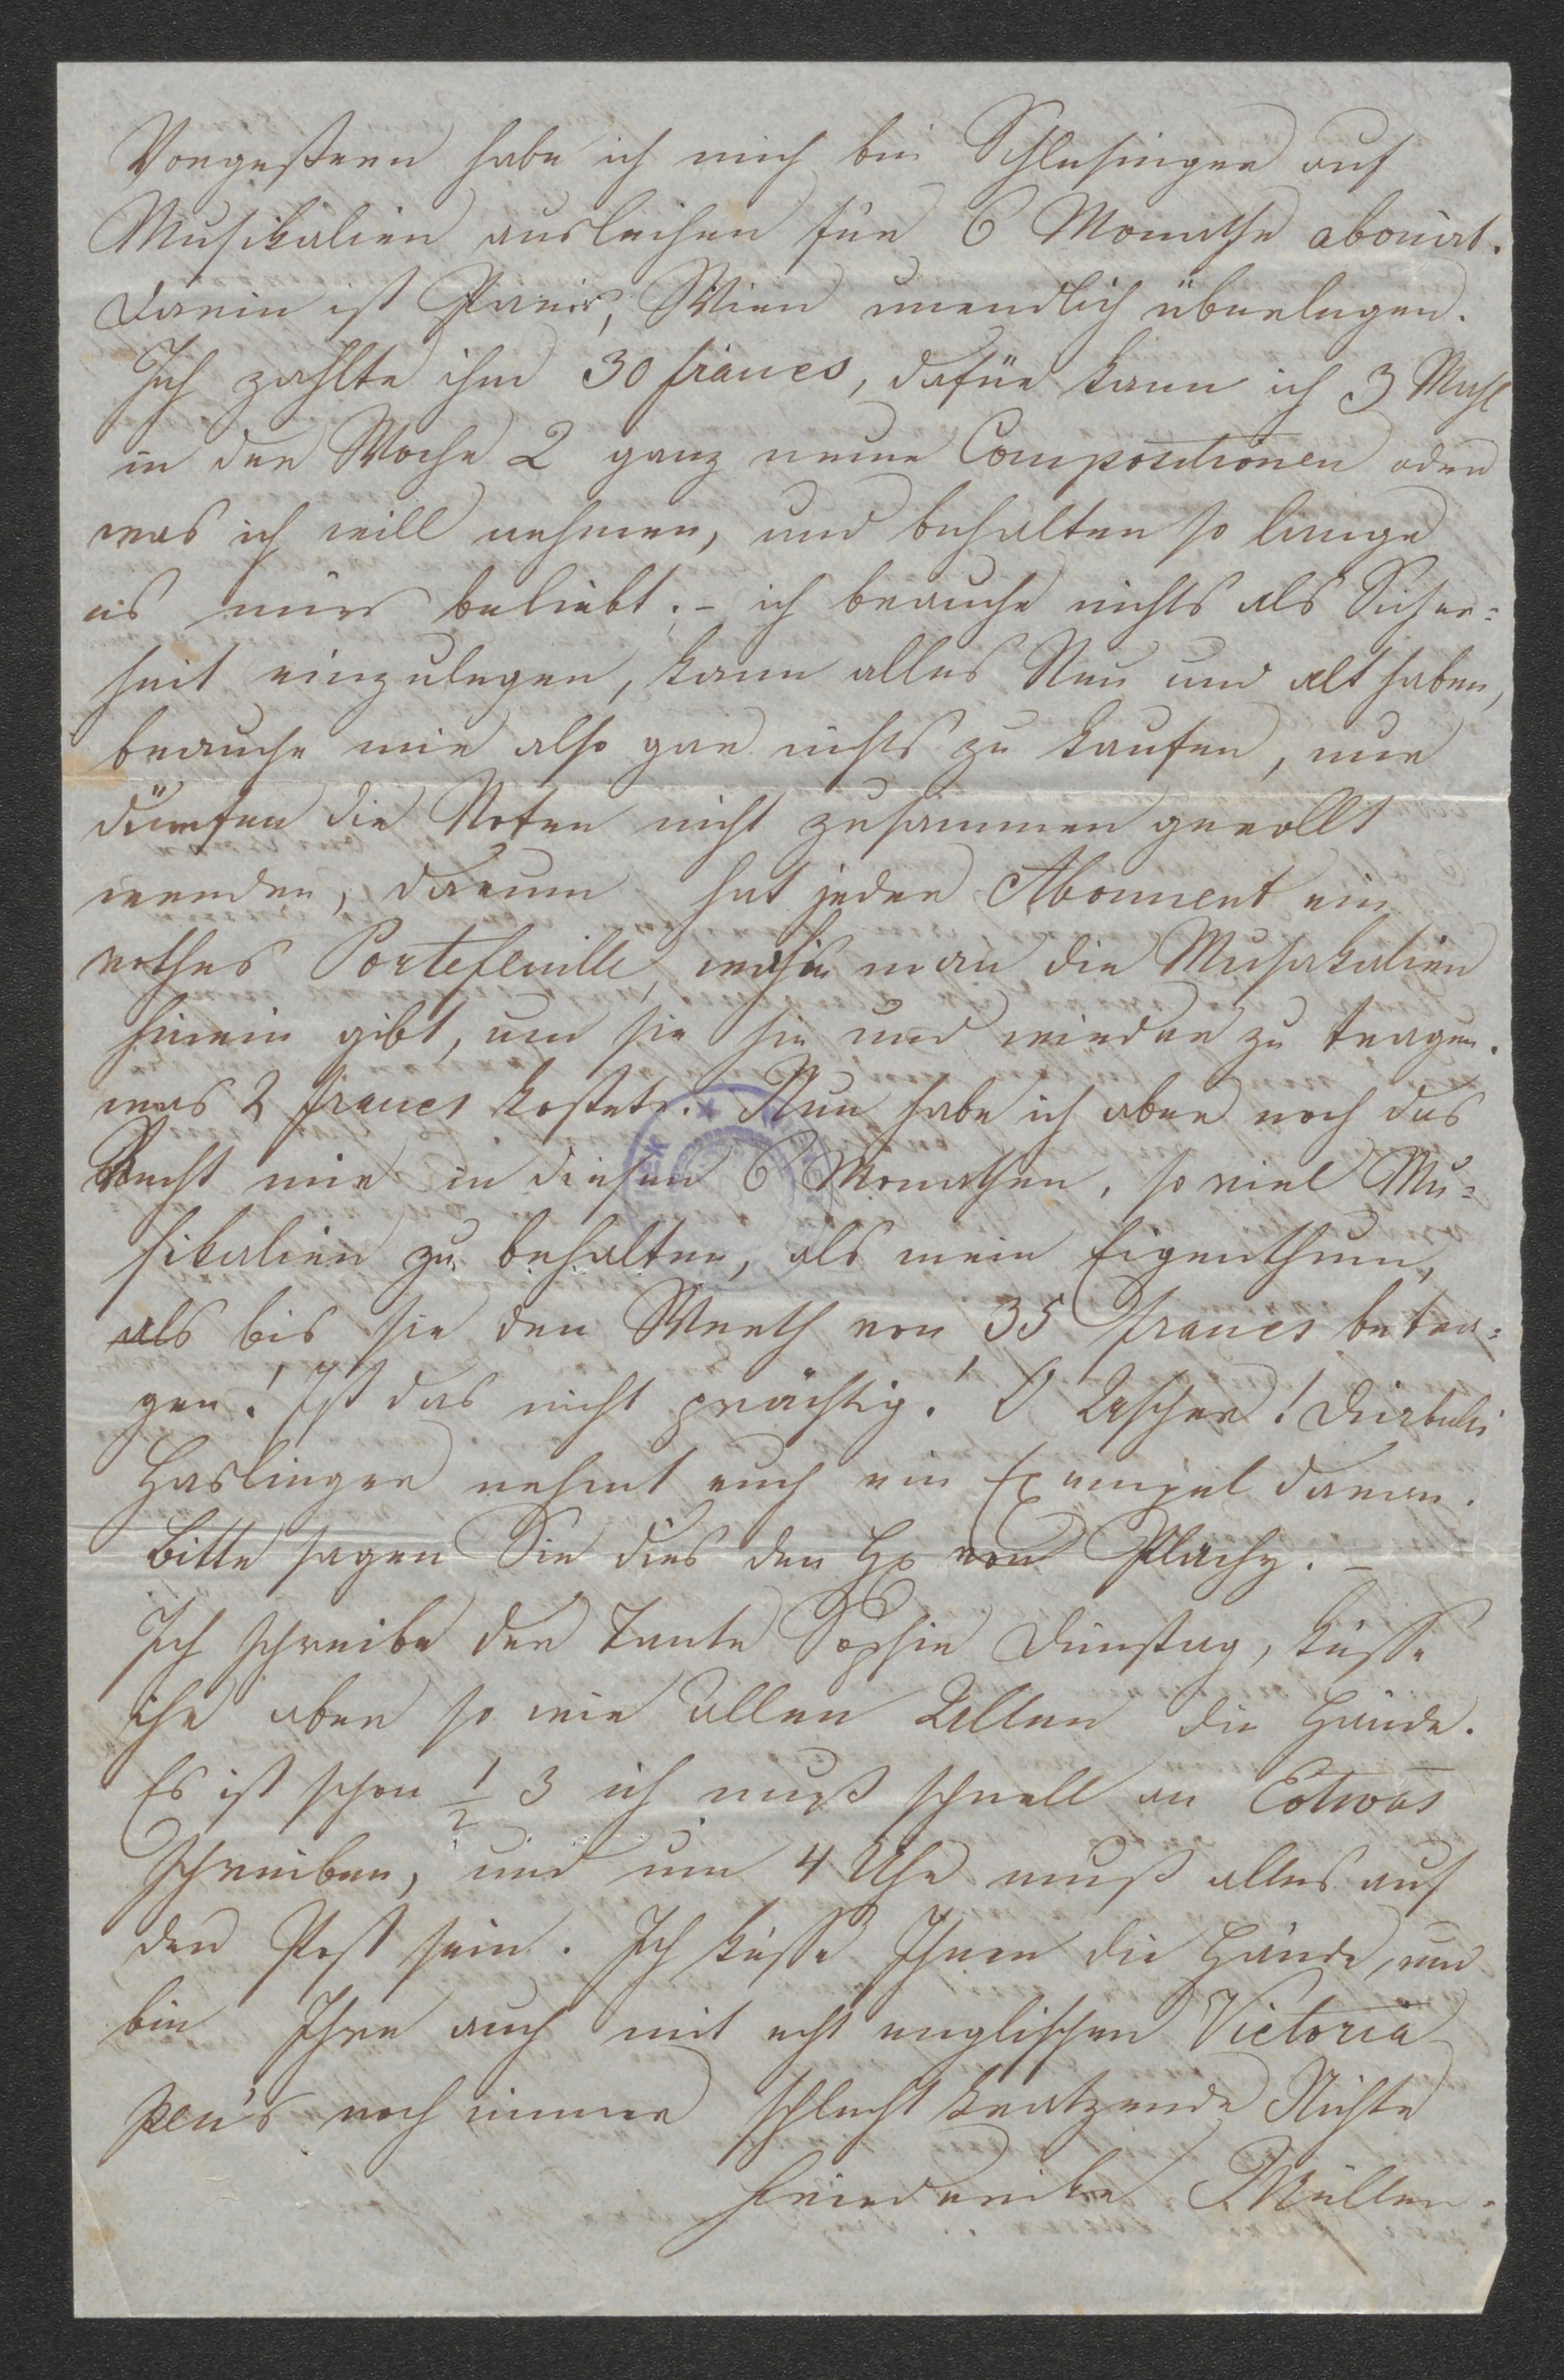 Vorgestern habe ich mich bei Schlesinger auf
Musikalien ausleihen für 6 Monathe abonirt.
darin ist Paris, Wien unendlich überlegen.
Ich zahlte ihm 30 francs, dafür kann ich 3 Mahl
in der Woche 2 ganz neue Compositionen oder
was ich will nehmen, und behalten so lange
es mir beliebt. – ich brauche nichts als Sicher=
heit einzulegen, kann alles Neu und alt haben,
brauche mir also gar nichts zu kaufen, nur
dürfen die Noten nicht zusammen gerollt
werden, darum hat jeder Abonnent ein
rothes Portefeuille, man die Musikalien
hinein gibt, um sie hin und wieder zu tragen.
was 2 francs kostete. Nun habe ich aber noch das
Recht mir in diesen 6 Monathen, so viel Mu=
sikalien zu behalten, als mein Eigenthum,
als bis sie den Werth von 35 francs betra=
gen! Ist das nicht prächtig! O Ascher! Diabelli
Haslinger nehmt euch ein Exempel daran.
Bitte sagen Sie dies den H von Plachy. –
Ich schreibe der Tante Sophie Dienstag, küsse
ihr aber so wie allen Allen die Hände.
Es ist schon 1/2 3 ich muß schnell an Eotwos
schreiben, und um 4 Uhr muß alles auf
der Post sein. Ich küsse Ihnen die Hände, und
bin Ihre auch mit echt englischen Victoria
pen's noch immer schlecht kratzende Nichte
Friederike Müller.